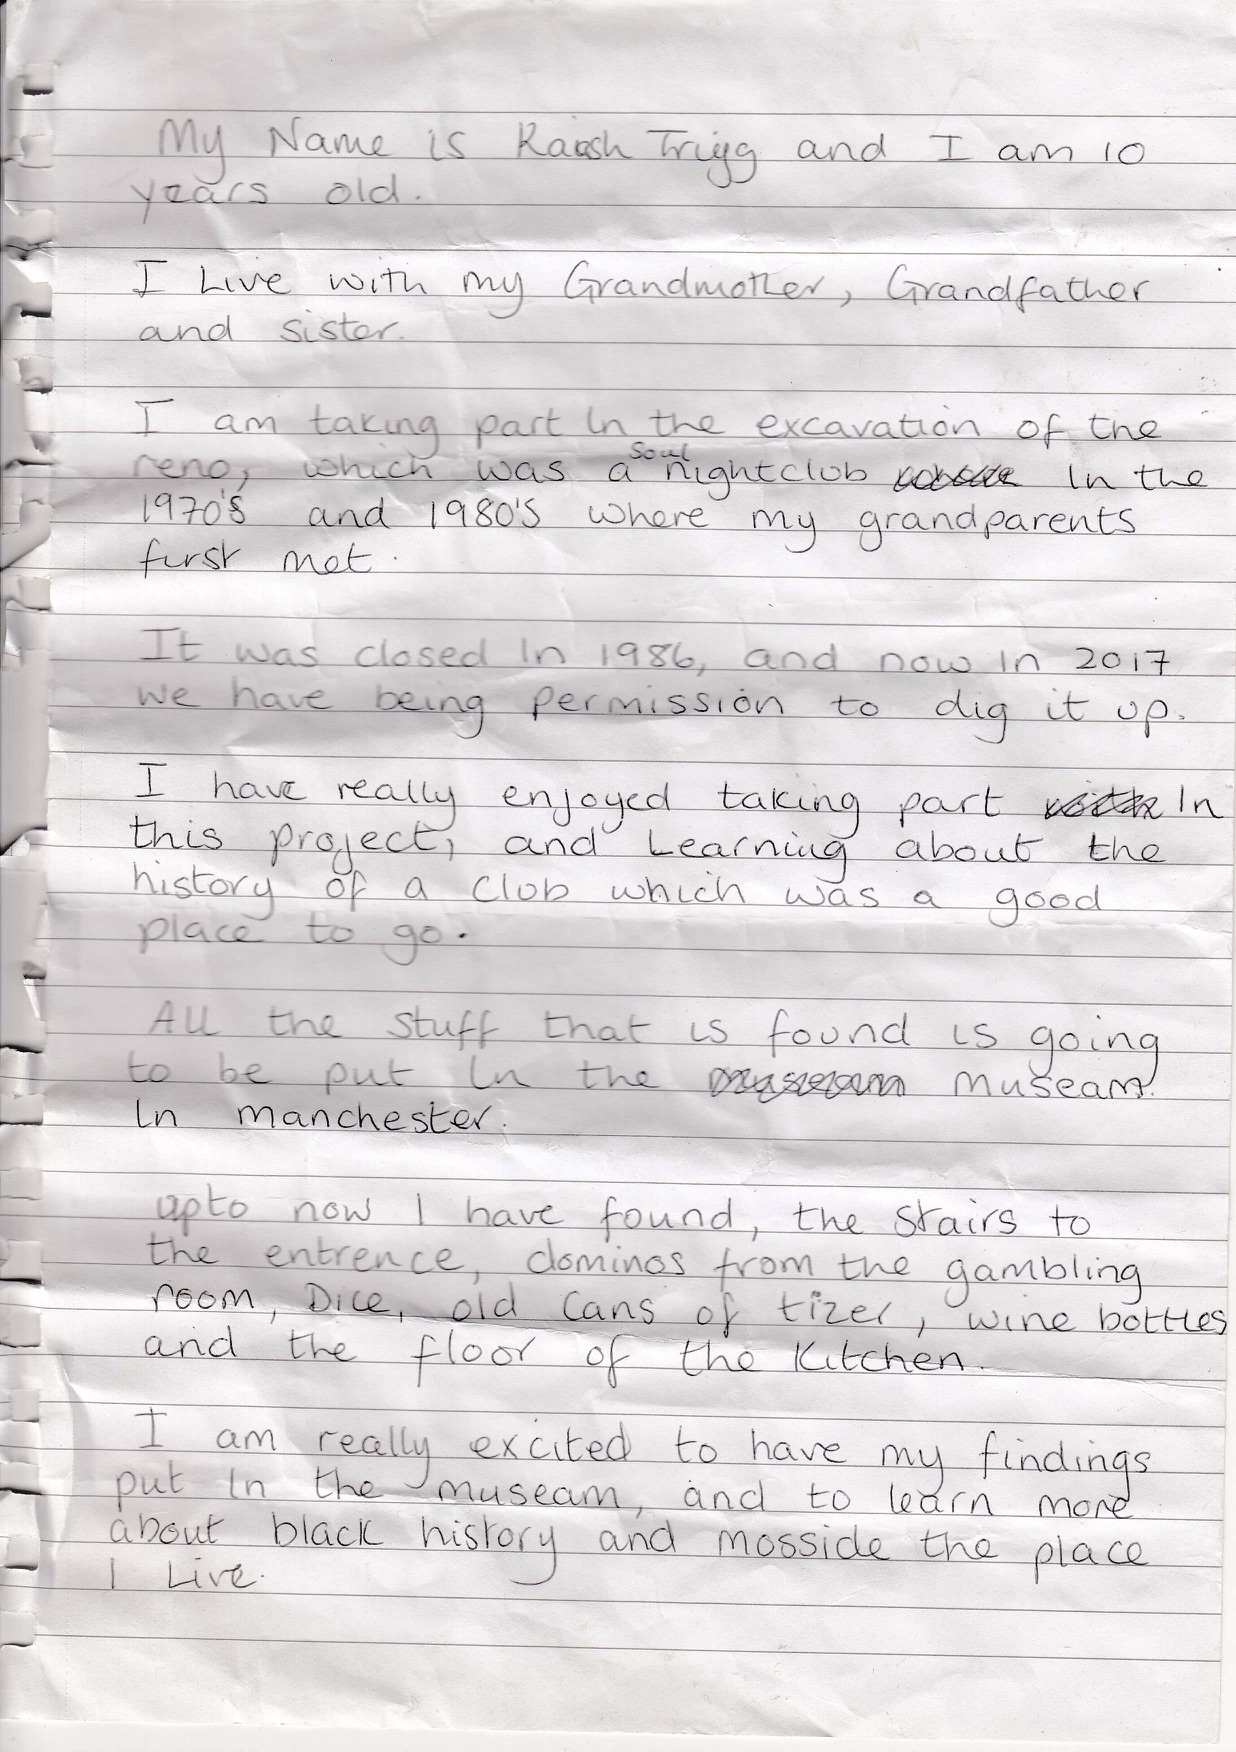 My Name is Raiesh Trigg and I am 10
years old.
I Live with my Grandmother, Grandfather
and sister.
I am taking part In the excavation of the
reno, which was a soul nightclub In the
1970's and 1980's where my grandparents
first met.
It was closed In 1986, and now In 2017
we have being permission to dig it up.
I have really enjoyed taking part In
this project, and Learning about the
history of a club which was a good
place to go.
All the stuff that is found is going
to be put In the museam
In manchester.
upto now I have found, the stairs to
the entrence, dominos from the gambling
room, Dice, old cans of tizer, wine bottles
and the floor of the kitchen.
I am really excited to have my findings
put In the museam, and to learn more
about black history and mosside the place
I Live.